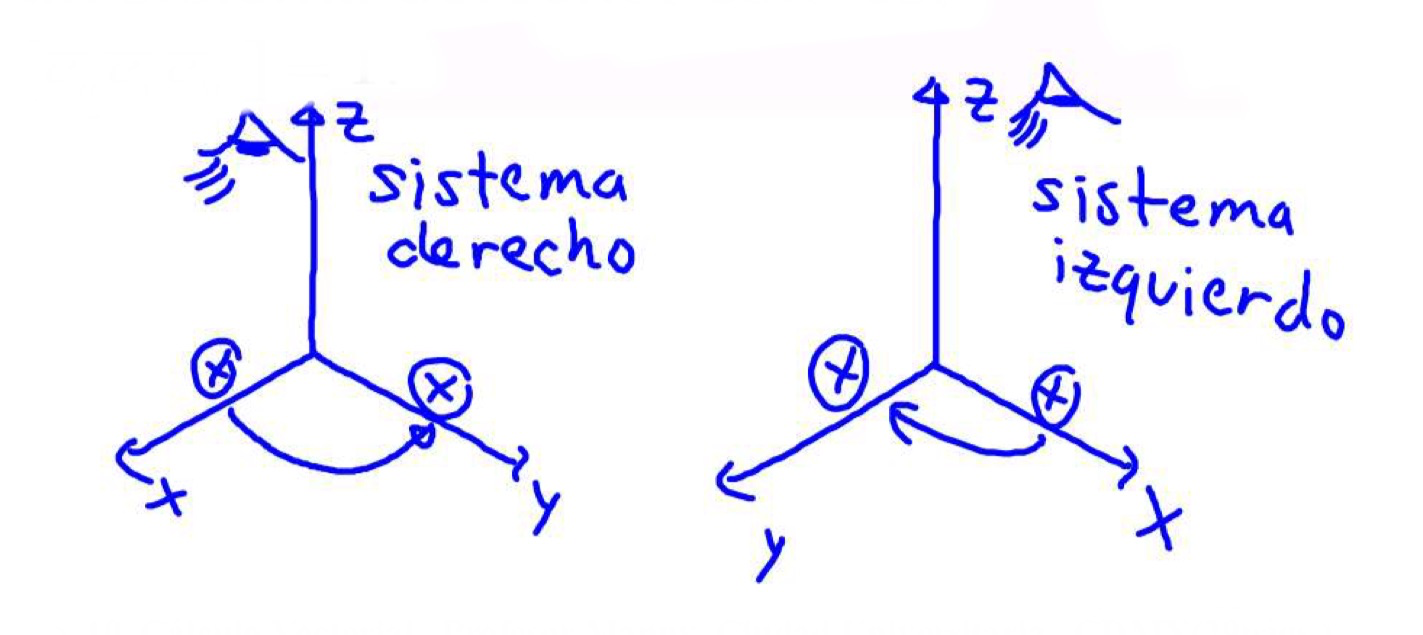 z
sistema
derecho
ⓧ
ⓧ
x
y
z
sistema
izquierdo
ⓧ
ⓧ
y
x